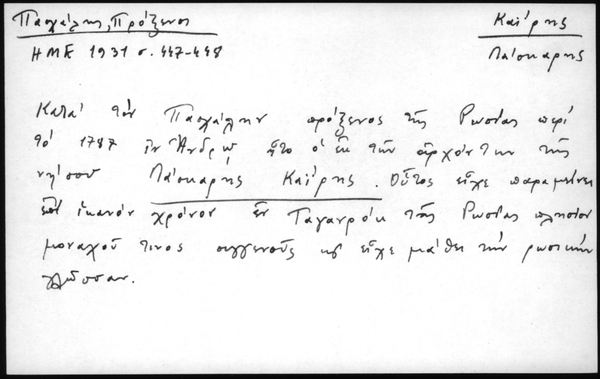 Πασχάλης, Πρόξενοι
Καΐρης
ΗΜΕ 1931 σ. 447-448
Λάσκαρης
Κατά τόν Πασχάλην πρόξενος τῆς Ρωσίας περί
τό 1787 ἐν Ἄνδρῳ ἦτο ὁ ἐκ τῶν ἀρχόντων τῆς
νήσου Λάσκαρης Καΐρης. Οὗτος εἶχε παραμείνει
ἐπί ἱκανόν χρόνον ἐν Ταγανρόκ τῆς Ρωσίας πλησίον
μοναχοῦ τινος συγγενοῦς καί εἶχε μάθει τήν ρωσικήν
γλῶσσαν.